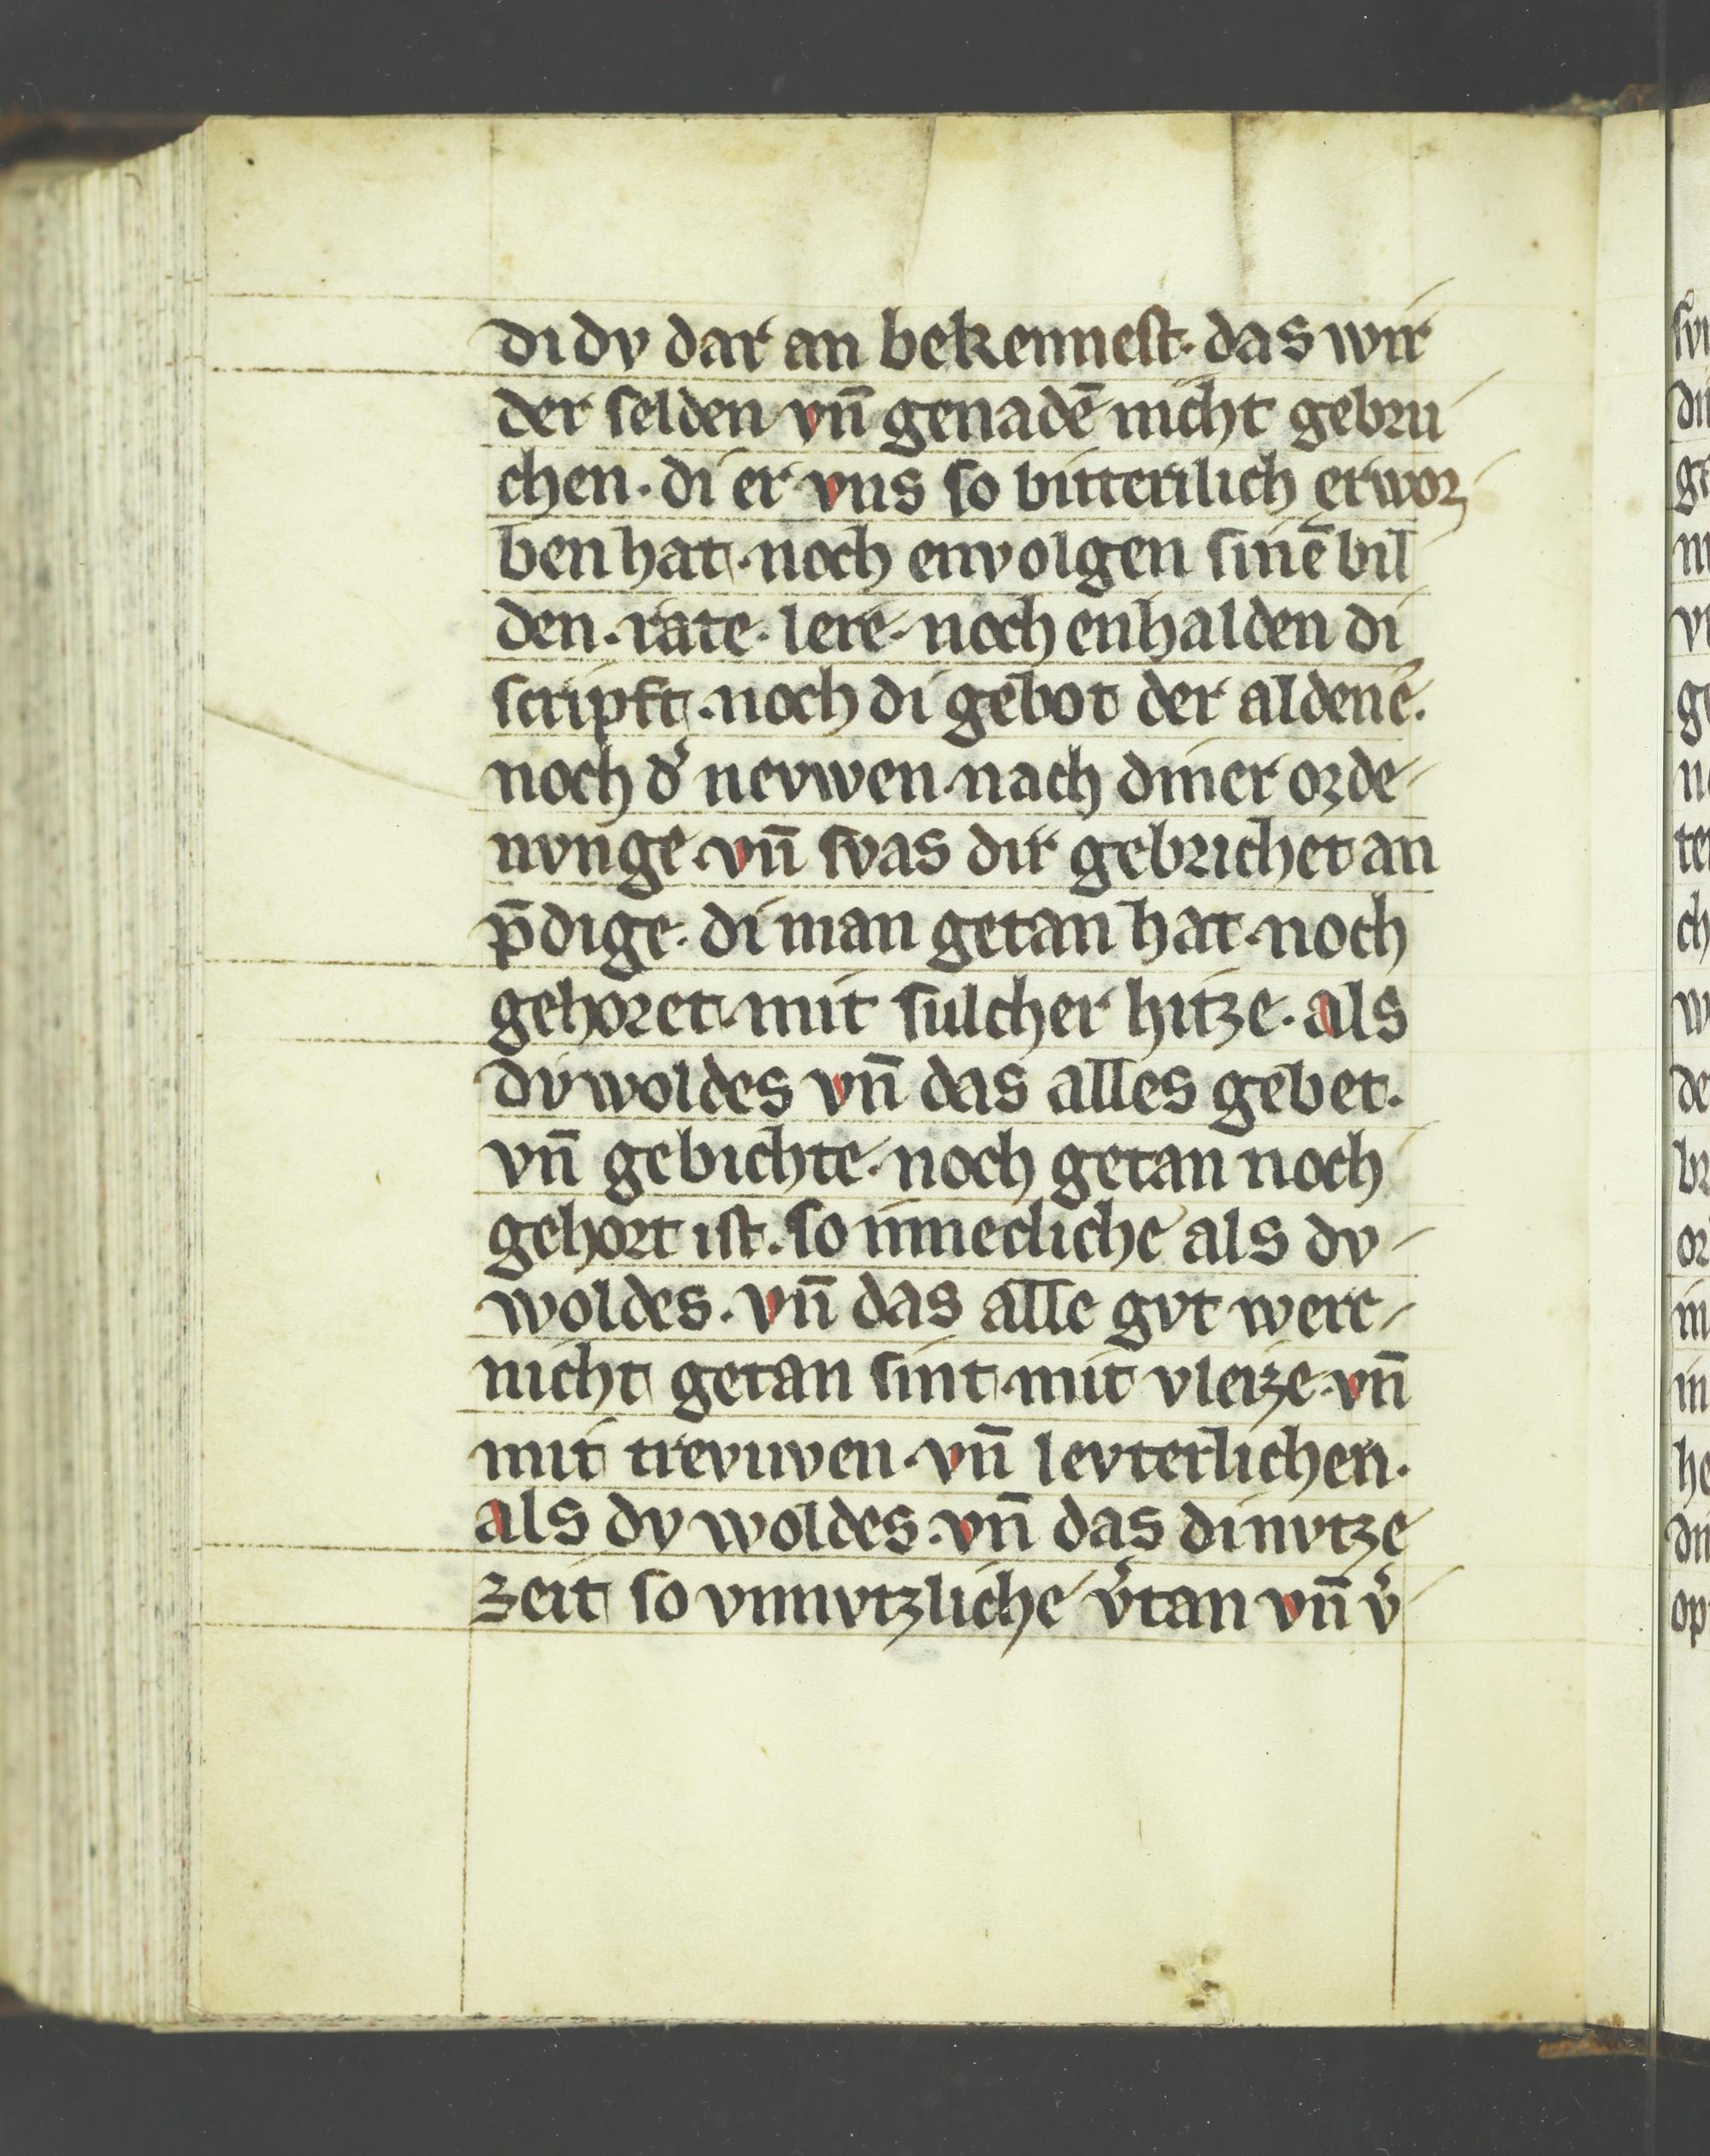 di dv dar an bekennest· das wir
der selden vn̄ genadē nicht gebru
chen· di er vns so bitterlich erwor
ben hat· noch envolgen sinē bil
den· rate· lere· noch enhalden di
scripft· noch di gebot der alden ē·
noch d͛ nevwen· nach diner orde
nvnge· vn̄ swas dir gebrichet an
p̄dige· di man getan hat· noch
gehoret· mit sulcher hitze· als
dv woldes vn̄ das alles gebet·
vn̄ gebichte· noch getan noch
gehort ist· so innecliche als dv
woldes· vn̄ das alle gvt werc
nicht getan sint· mit vleize· vn̄
mit trevwen· vn̄ levterlichen·
als dv woldes· vn̄ das di nvtze
zeit so vnnvtzliche v͛tan vn̄ v͛